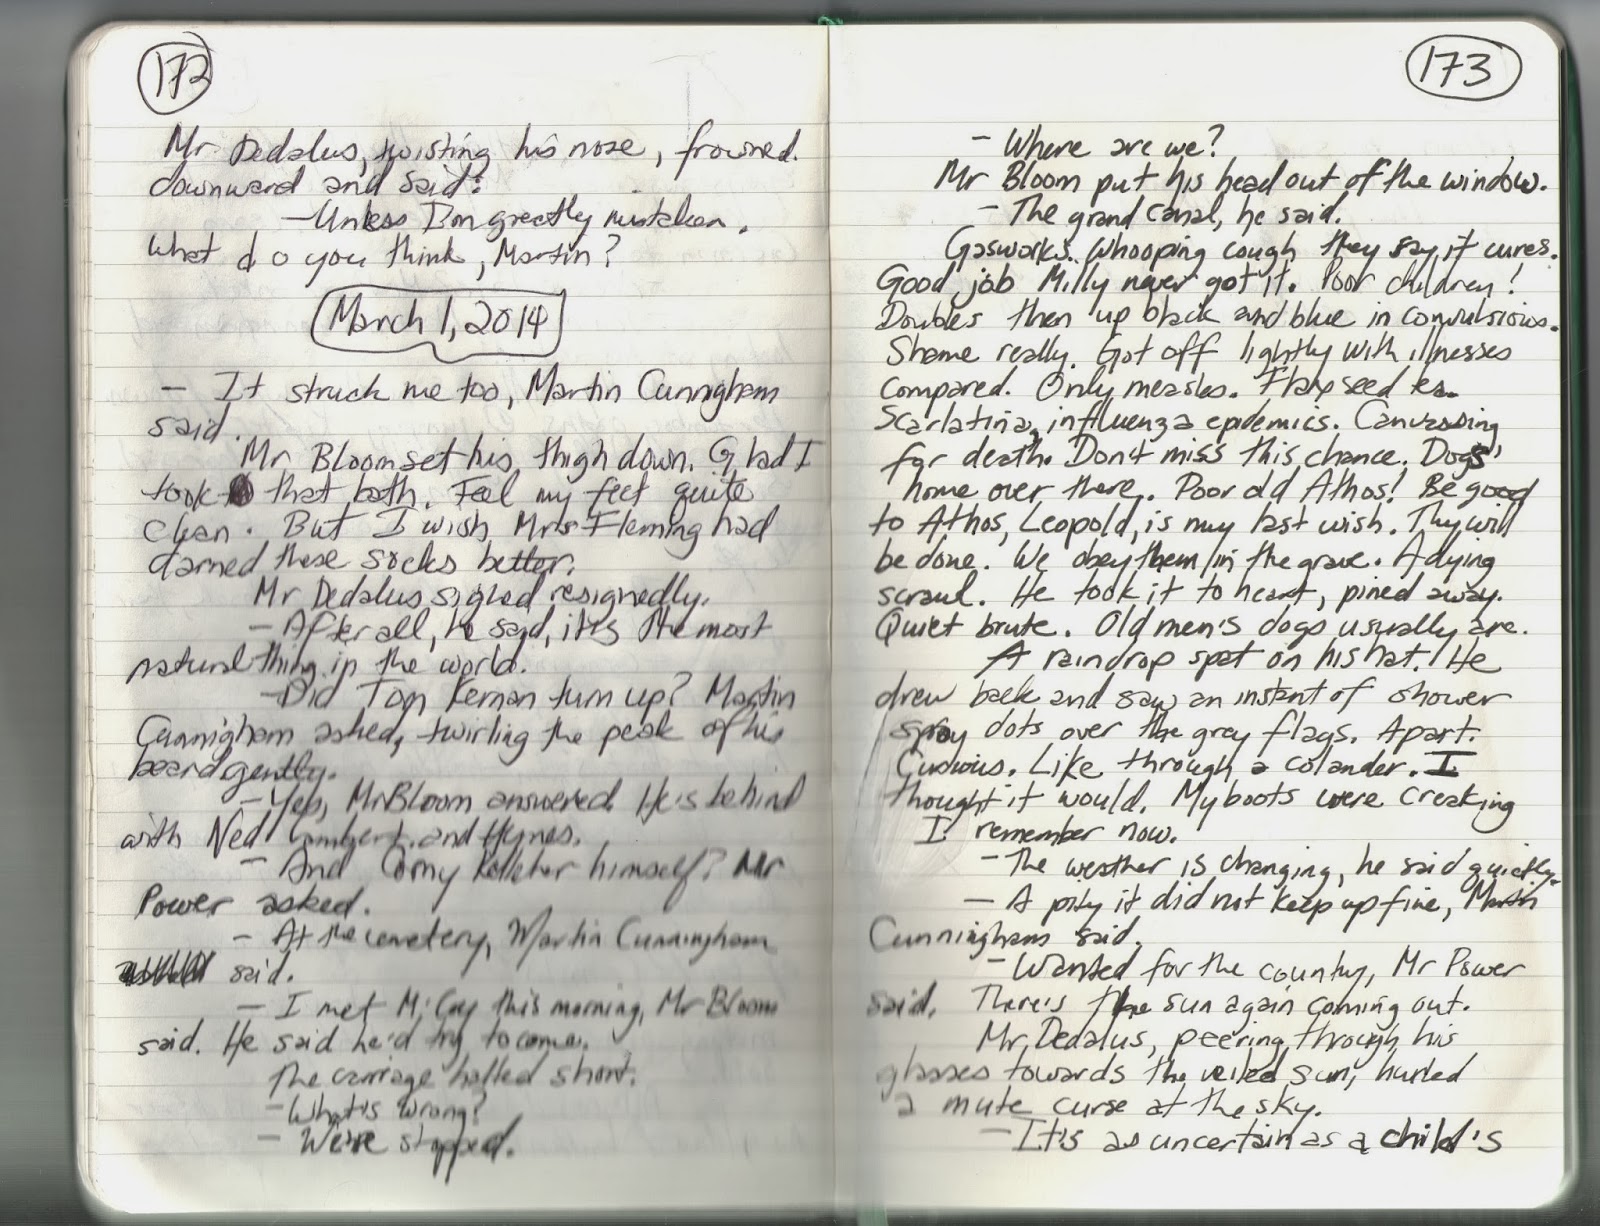 172
Mr Dedalus, twisting his nose, frowned.
downward and said:
- Unless I'm greatly mistaken.
What do you think, Martin?
March 1, 2014
- It struck me too, Martin Cunnigham
said.
Mr Bloom set his thigh down. Glad I
took that bath. Feel my feet quite
clean. But I wish Mrs Fleming had
darned these socks better.
Mr Dedalus sighed resignedly.
- After all, he said, it's the most
natural thing in the world.
- Did Tom Kernan turn up? Martin
Cunnigham asked, twirling the peak of his
beard gently.
- Yes, Mr Bloom answered. He's behind
with Ned Lambert and Hynes.
- And Corny Kelleher himself? Mr
Power asked.
- At the cemetery, Martin Cunningham
said.
- I met M'Coy this morning, Mr Bloom
said. He said he'd try to come.
The carriage halted short.
- What's wrong?
- We're stopped.
173
- Where are we?
Mr Bloom put his head out of the window.
- The grand canal, he said.
Gasworks. Whooping cough they say it cures.
Good job Milly never got it. Poor children!
Doubles them up black and blue in convulsions.
Shame really. Got off lightly with illnesses
compared. Only measles. Flaxseed tea.
Scarlatina, influenza epidemics. Canvassing
for death. Don't miss this chance. Dogs'
home over there. Poor old Athos! Be good
to Athos, Leopold, is my last wish. Thy will
be done. We obey them in the grave. A dying
scrawl. He took it to heart, pined away.
Quiet brute. Old men's dogs usually are.
A raindrop spat on his hat. He
drew back and saw an instant of shower
spray dots over the grey flags. Apart.
Curious. Like through a colander. I
thought it would. My boots were creaking
I remember now.
- The weather is changing, he said quietly.
- A pity it did not keep up fine, Martin
Cunningham said.
- Wanted for the country, Mr Power
said. There's the sun again coming out.
Mr Dedalus, peering through his
glasses towards the veiled sun, hurled
a mute curse at the sky.
- It's as uncertain as a child's